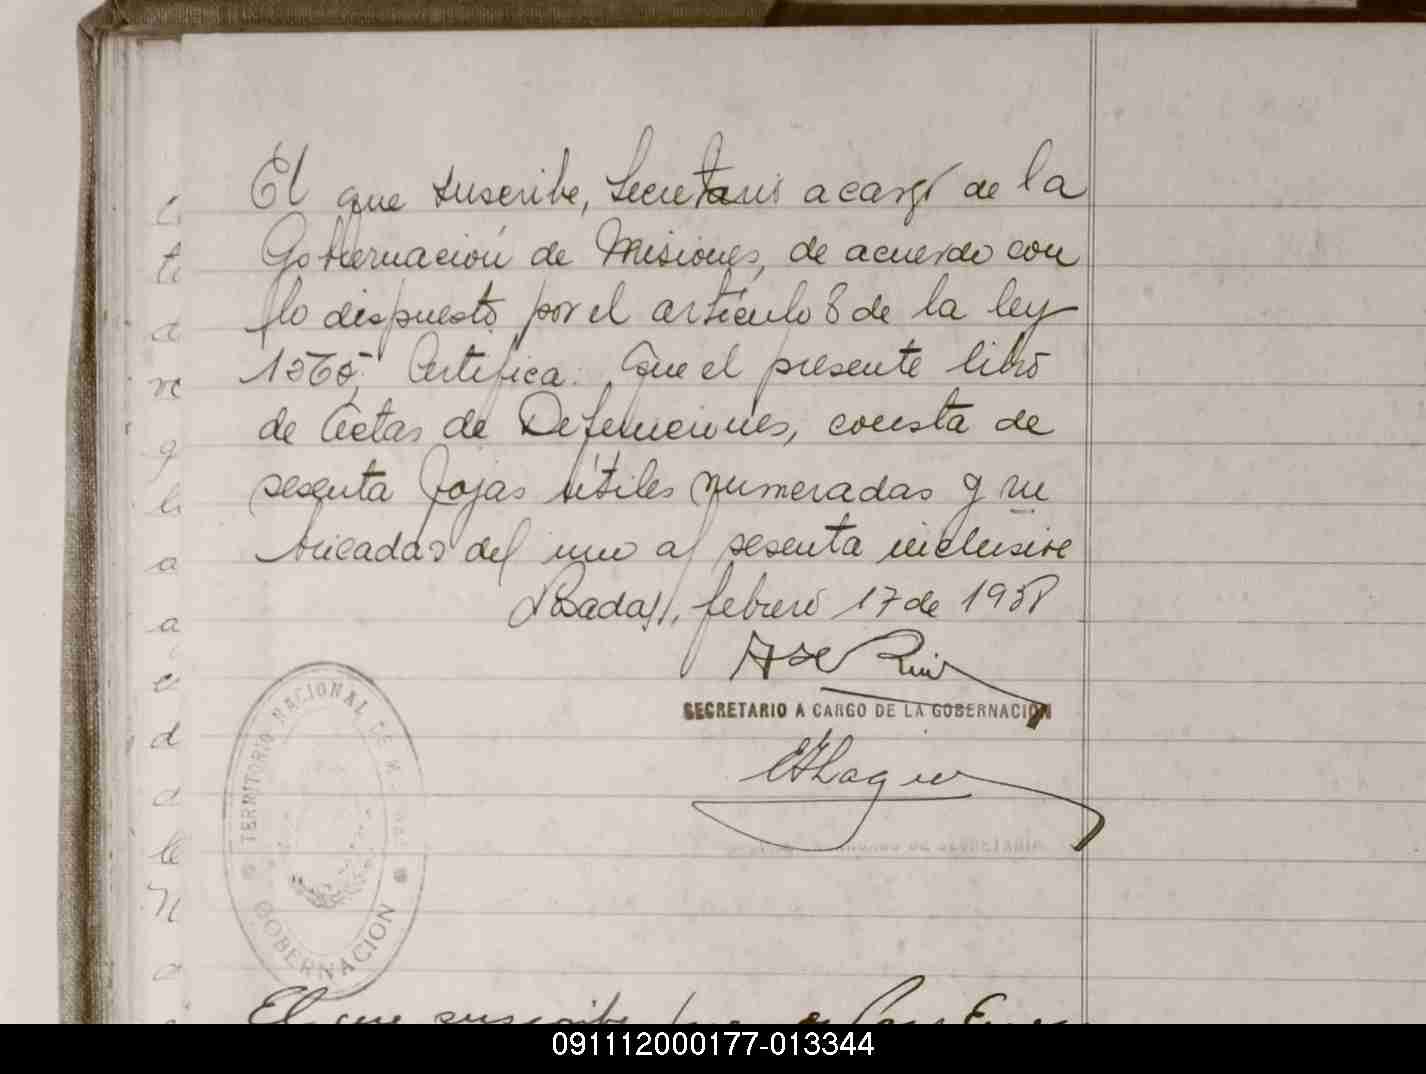 El que suscribe, Secretario a cargo de la
Gobernación de Misiones, de acuerdo con
lo dispuesto por el artículo 8 de la ley
1565, Certifica: Que el presente libro
de Actas de Defunciones, consta de
sesenta fojas útiles numeradas y ru
bricadas del uno al sesenta inclusive
Posadas, febrero 17 de 1938
SECRETARIO A CARGO DE LA GOBERNACION
TERRITORIO NACIONAL DE
GOBERNACION
El que suscribe
091112000177-013344